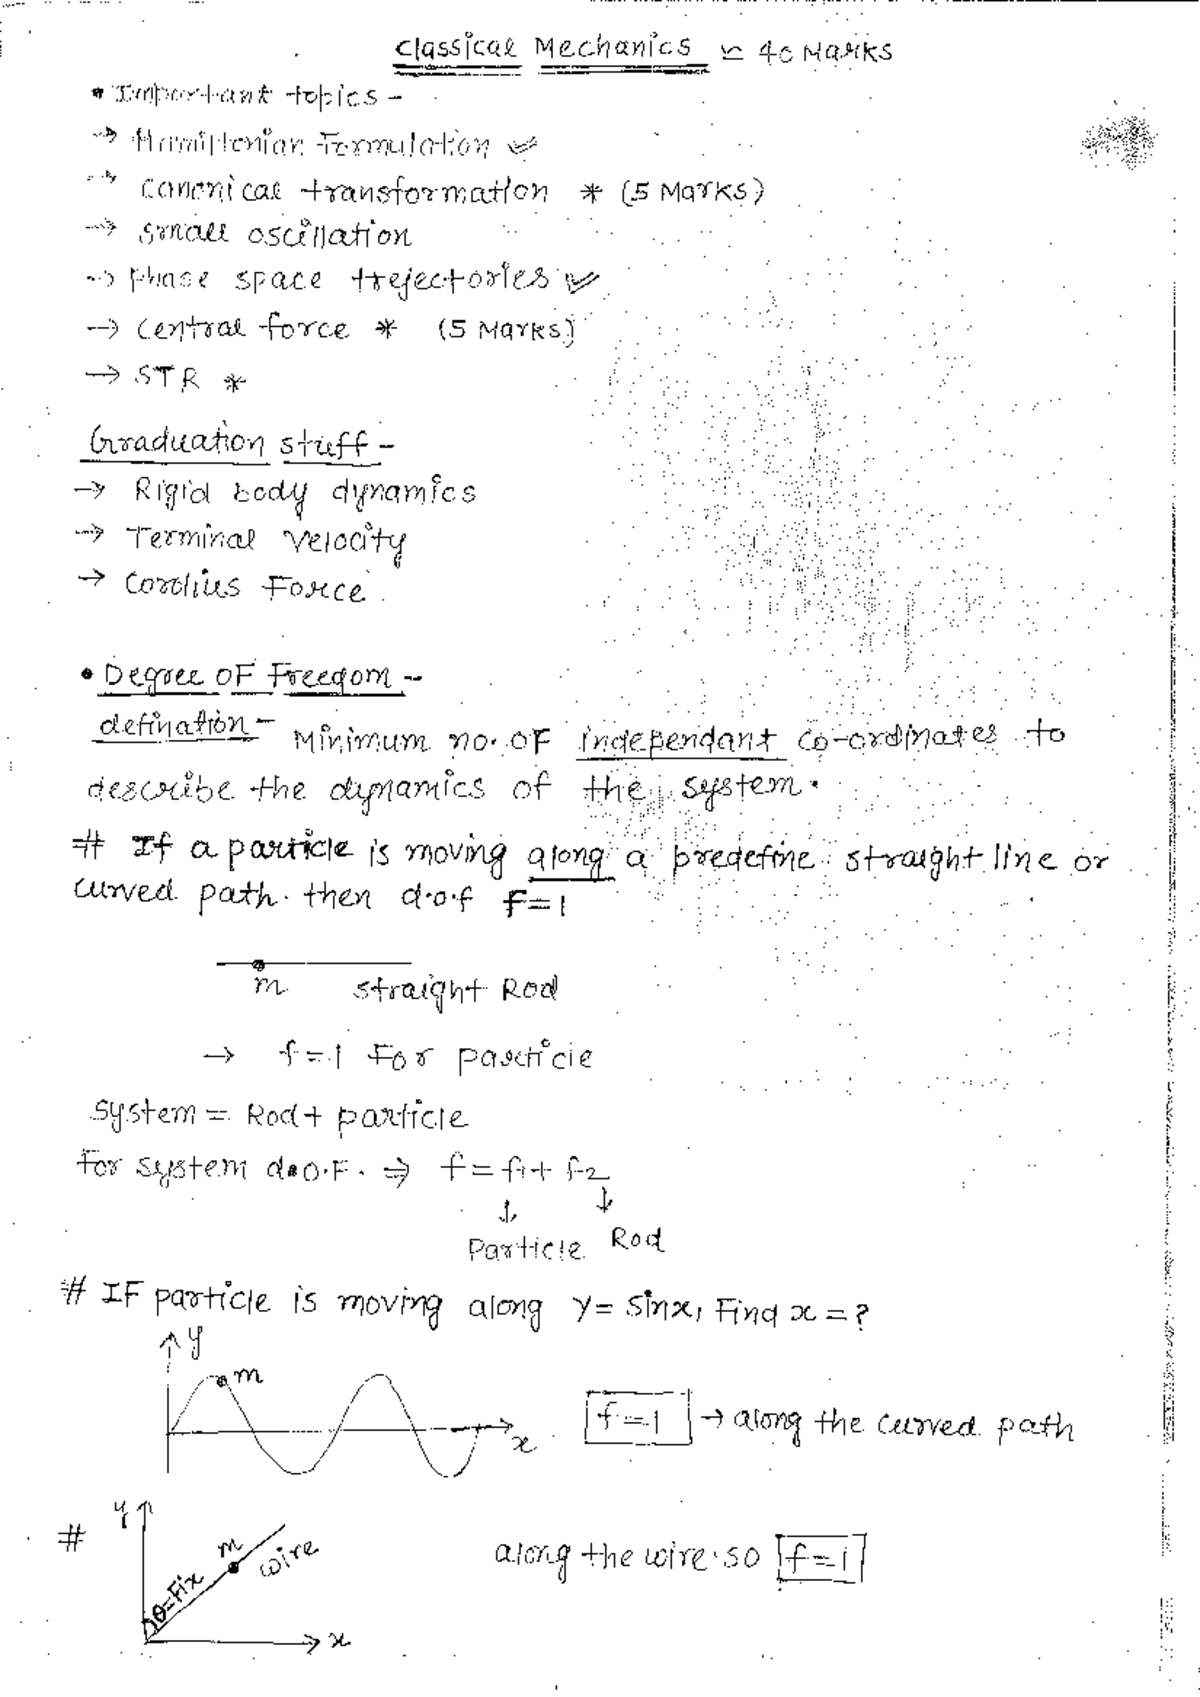 Classical Mechanics ≃ 40 Marks
• Important topics -
→ Hamiltonian Formulation ✓
→ canonical transformation * (5 Marks)
→ small oscillation
→ phase space trejectories ✓
→ central force * (5 Marks)
→ STR *
Graduation stuff -
→ Rigid body dynamics
→ Terminal velocity
→ Corolius Force
• Degree OF Freedom --
defination - Minimum no. OF independant co-ordinates to
describe the dynamics of the system.
# If a particle is moving along a predefine straight line or
curved path. then d.o.f f=1
m straight Rod
→ f=1 For particle
system = Rod + particle
For system d.o.F. ⇒ f = f1 + f2
↓ ↓
Particle Rod
# IF particle is moving along y = sinx, Find x = ?
y
m
x
f=1 → along the curved path
# y
m wire
θ=Fix
x
along the wire. so f=1